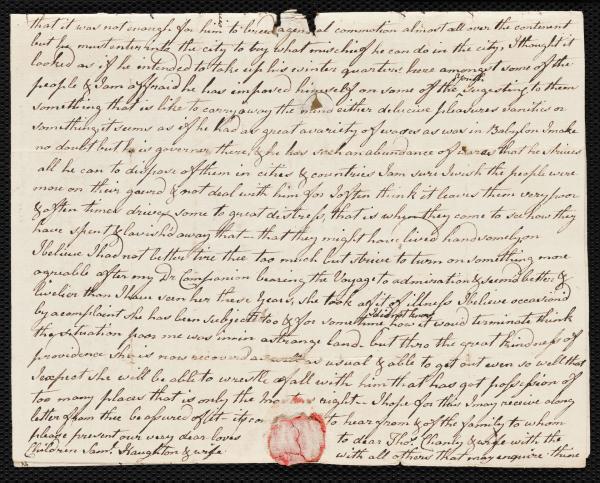 that it was not enough for him to breed a general commotion almost all over the continent
but he must enter into the city to buy what mischief he can do in the city, I thought it
looked as if he intended to take up his winter quarters here amongst some of the
people & I am affraid he was imposed himself on some of the Youth sugesting to them
something that is like to carry away the mind either delucive pleasures vanities or
something it seems as if he had as great a variety of wages as was in Babylon I make
no doubt but he is governer there, & he has such an abundance of wares that he strives
all he can to dispose of them in cities & countries I am sure I wish the people were
more on their gaurd & not deal with him for I often think it leaves them very poor
& often times drives some to great distress, that is when they come to see how they
have spent & lavish'd away that - that they might have lived handsomely on
I believe I had not better tire thee too much but strive to turn on something more
agreeable after my Dr. Companion bearing the Voyage to admiration & seem'd better &
livelier than I have seen her these Years, she took a fit of illness I believe occasiond
by a complaint she has been subject too & for sometime how it would terminate think
the situation poor me was in in a strange land. but thro the great kindness of
providence She is now recovered as usual & able to get out even so well that
I expect she will be able to wrestle a fall with him that has got possession of
too many places that is only the right - I hope for this I may receive a long
letter from thee be assured of it. to hear from & of the family to whom
please present our very dear loves to dear Thos. & wife with the
Children Saml. Haughton & wife with all others that may enquire. thine